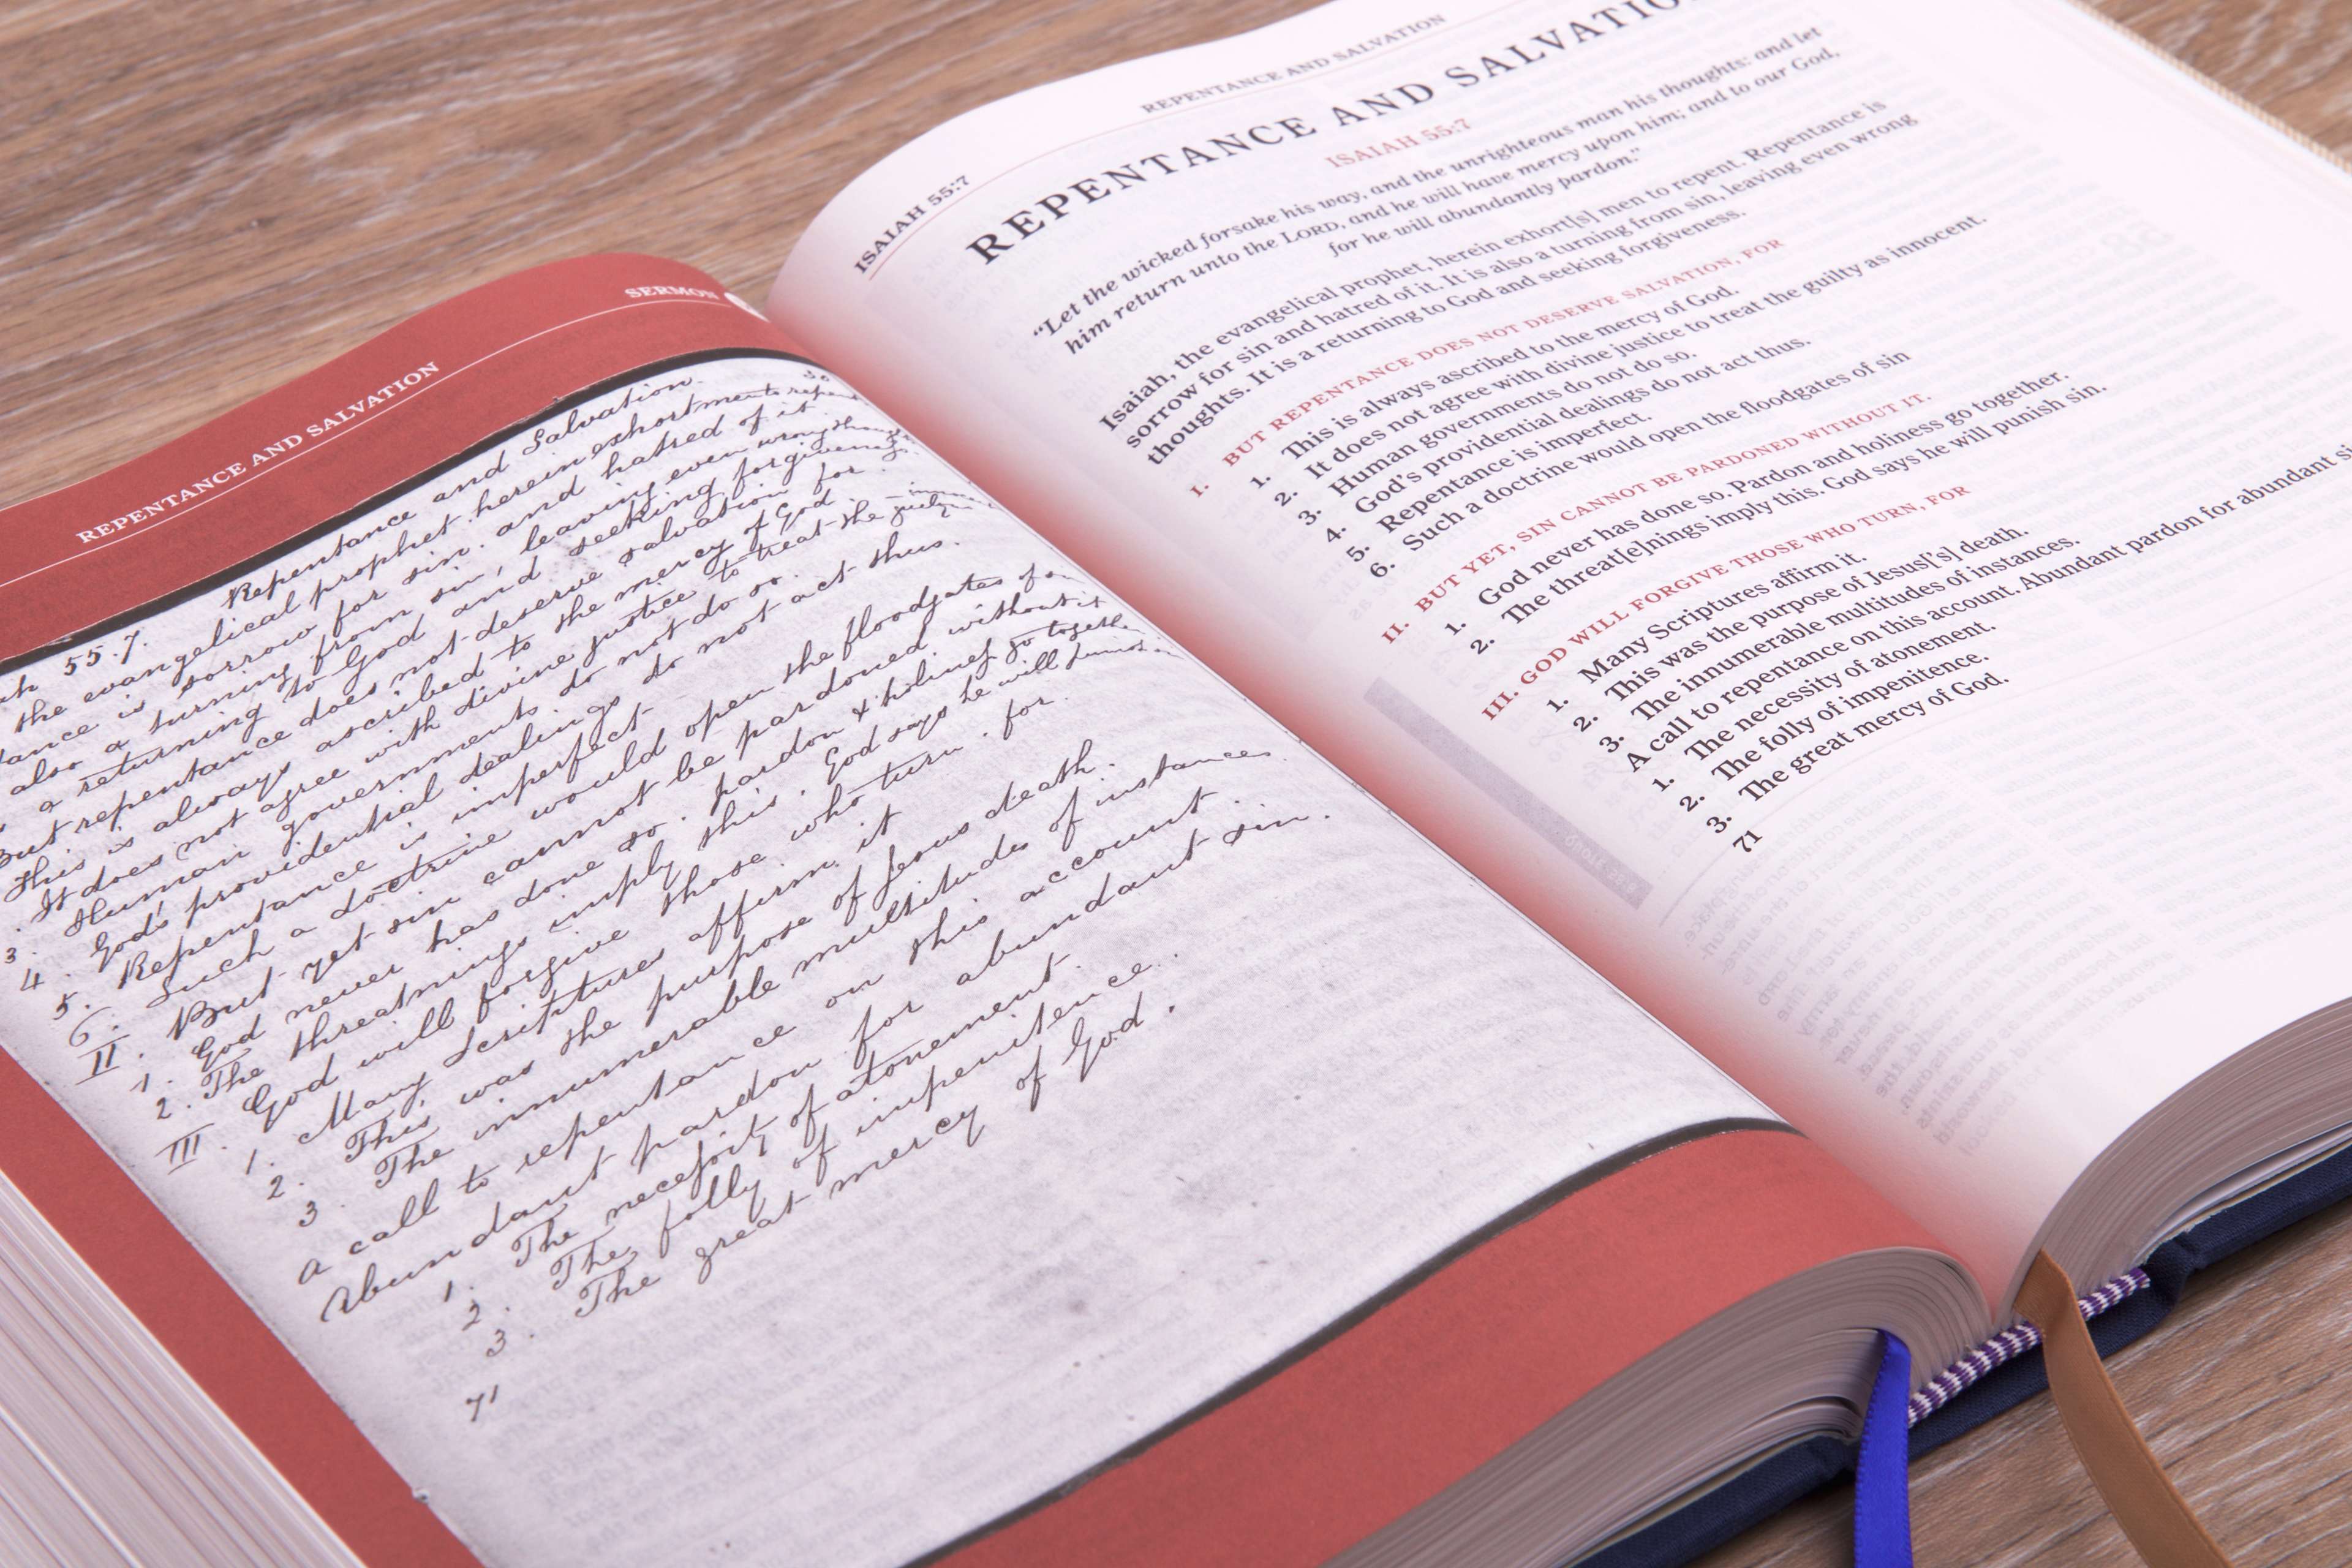 REPENTANCE AND SALVATION
SERMON
Repentance and Salvation.
55.7.
the evangelical prophet herein exhort men to repent
is sorrow for sin. and hatred of it
also a turning from sin, leaving even wrong
a returning to God and seeking forgiveness
But repentance does not deserve salvation for.
This is always ascribed to the mercy of God
It does not agree with divine justice to treat the guilty
3. Human governments do not do so.
4. God's providential dealings do not act thus.
5. Repentance is imperfect
6. Such a doctrine would open the floodgates of
II. But yet sin cannot be pardoned. without it
1. God never has done so. pardon & holiness go
2. The threatnings imply this. God says he will
III. God will forgive those who turn. for.
1. Many Scriptures affirm it
2. This was the purpose of Jesus death.
3. The innumerable multitudes of instances.
A call to repentance on this account
Abundant pardon for abundant sin.
1. The necessity of atonement.
2. The folly of impenitence.
3. The great mercy of God.
71
ISAIAH 55:7
REPENTANCE AND SALVATION
REPENTANCE AND
ISAIAH 55:7
“Let the wicked forsake his way, and the unrighteous man his thoughts: and let
him return unto the LORD, and he will have mercy upon him; and to our God,
for he will abundantly pardon.”
Isaiah, the evangelical prophet, herein exhort[s] men to repent. Repentance is
sorrow for sin and hatred of it. It is also a turning from sin, leaving even wrong
thoughts. It is a returning to God and seeking forgiveness.
I. BUT REPENTANCE DOES NOT DESERVE SALVATION, FOR
1. This is always ascribed to the mercy of God.
2. It does not agree with divine justice to treat the guilty as innocent.
3. Human governments do not do so.
4. God's providential dealings do not act thus.
5. Repentance is imperfect.
6. Such a doctrine would open the floodgates of sin
II. BUT YET, SIN CANNOT BE PARDONED WITHOUT IT.
1. God never has done so. Pardon and holiness go together.
2. The threat[e]nings imply this. God says he will punish sin.
III. GOD WILL FORGIVE THOSE WHO TURN, FOR
1. Many Scriptures affirm it.
2. This was the purpose of Jesus['s] death.
3. The innumerable multitudes of instances.
A call to repentance on this account. Abundant pardon for abundant
1. The necessity of atonement.
2. The folly of impenitence.
3. The great mercy of God.
71